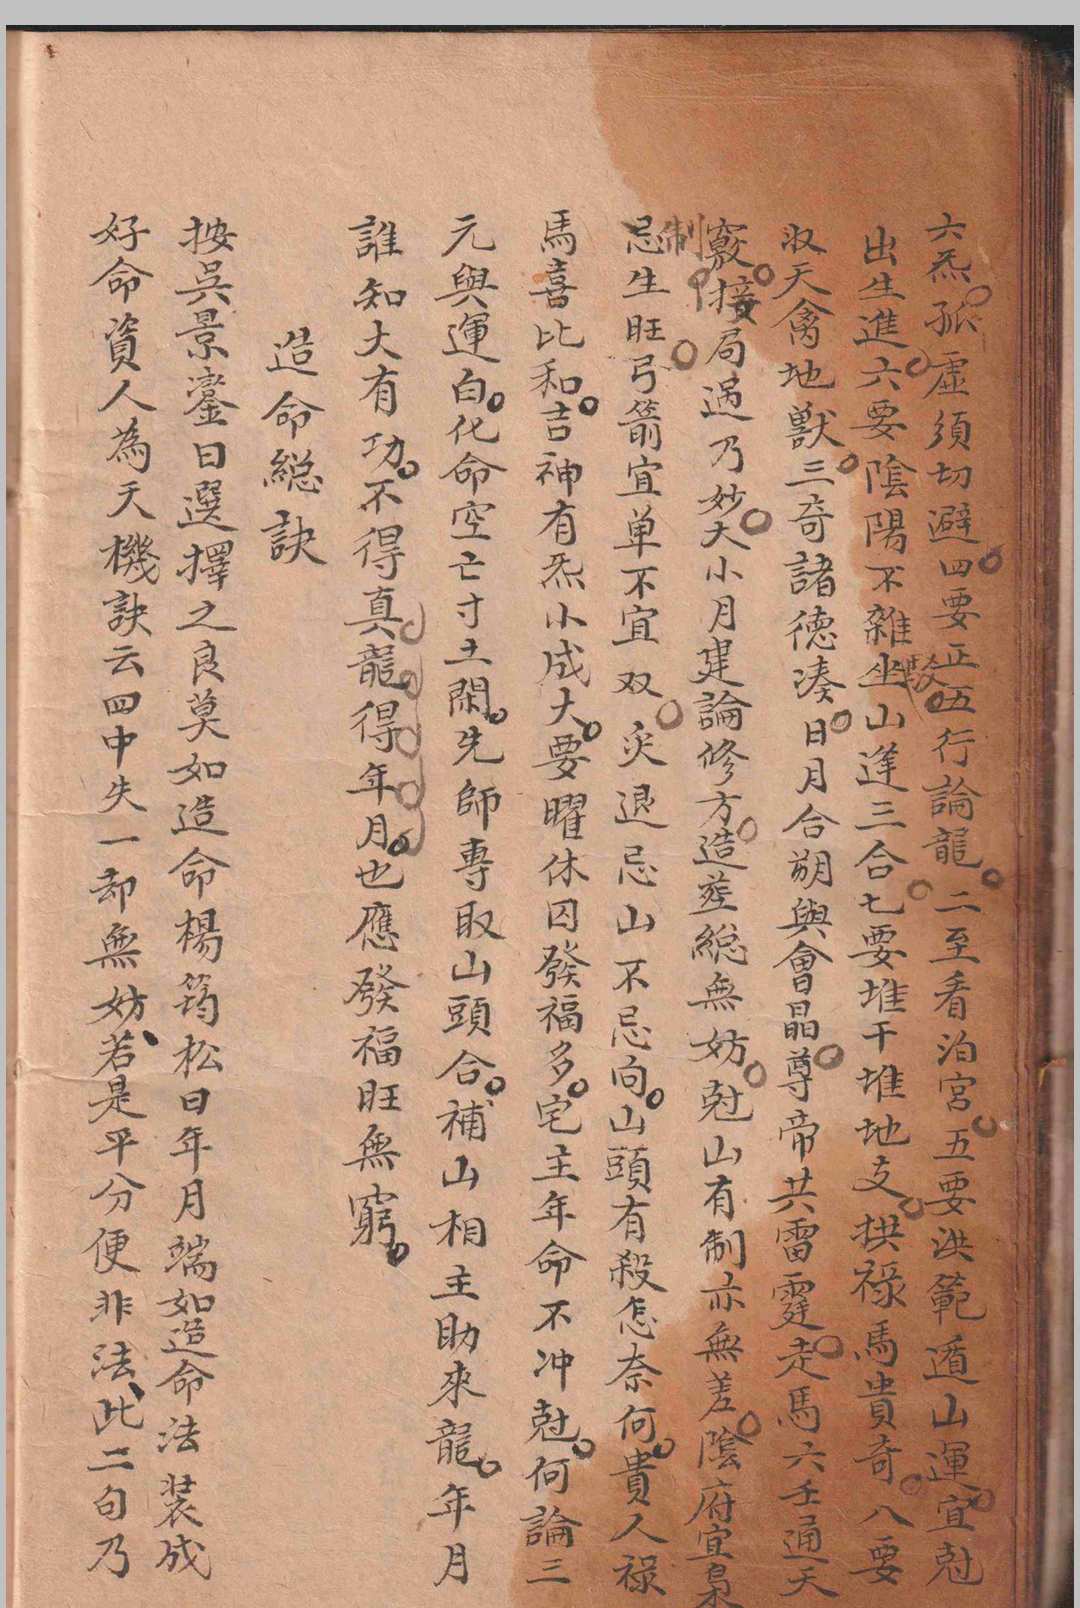 六炁孤虛須切避四要正五行論龍二至看泊宮五要洪範遁山運宜尅
出生進六要陰陽不雜坐山逢三合七要堆干堆地支拱祿馬貴奇八要
収天禽地獸三奇諸德湊日月合朔與會晶尊帝共雷霆走馬六壬通天
竅接制局遇乃妙大小月建論修方造塟總無妨尅山有制亦無差陰府宜梟
忌生旺弓箭宜单不宜双灾退忌山不忌向山頭有殺怎奈何貴人祿
馬喜比和吉神有炁小成大要曜休囚發福多宅主年命不冲尅何論三
元與運白化命空亡寸土閑先師專取山頭合補山相主助來龍年月
誰知大有功不得真龍得年月也應發福旺無窮
造命総訣
按吳景鸞曰選擇之良莫如造命楊筠松曰年月端如造命法装成
好命資人為天機訣云四中失一却無妨若是平分便非法此二句乃